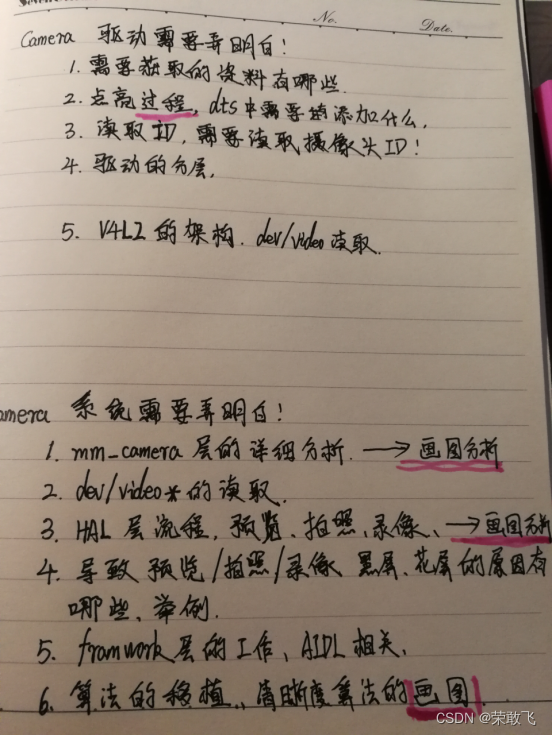 No.
Date.
Camera 驱动需要弄明白!
1. 需要获取的资料有哪些.
2. 点亮过程, dts中需要添加什么.
3. 读取ID, 需要读取摄像头ID!
4. 驱动的分层.
5. V4L2 的架构. dev/video 读取.
amera 系统需要弄明白!
1. mm_camera 层的详细分析. → 画图分析
2. dev/video*的读取.
3. HAL 层流程, 预览、拍照、录像、→画图分析
4. 导致 预览/拍照/录像 黑屏、花屏的原因有
哪些、举例.
5. framwork层的工作、AIDL相关.
6. 算法的移植、清晰度算法的画图.
CSDN @荣敢飞